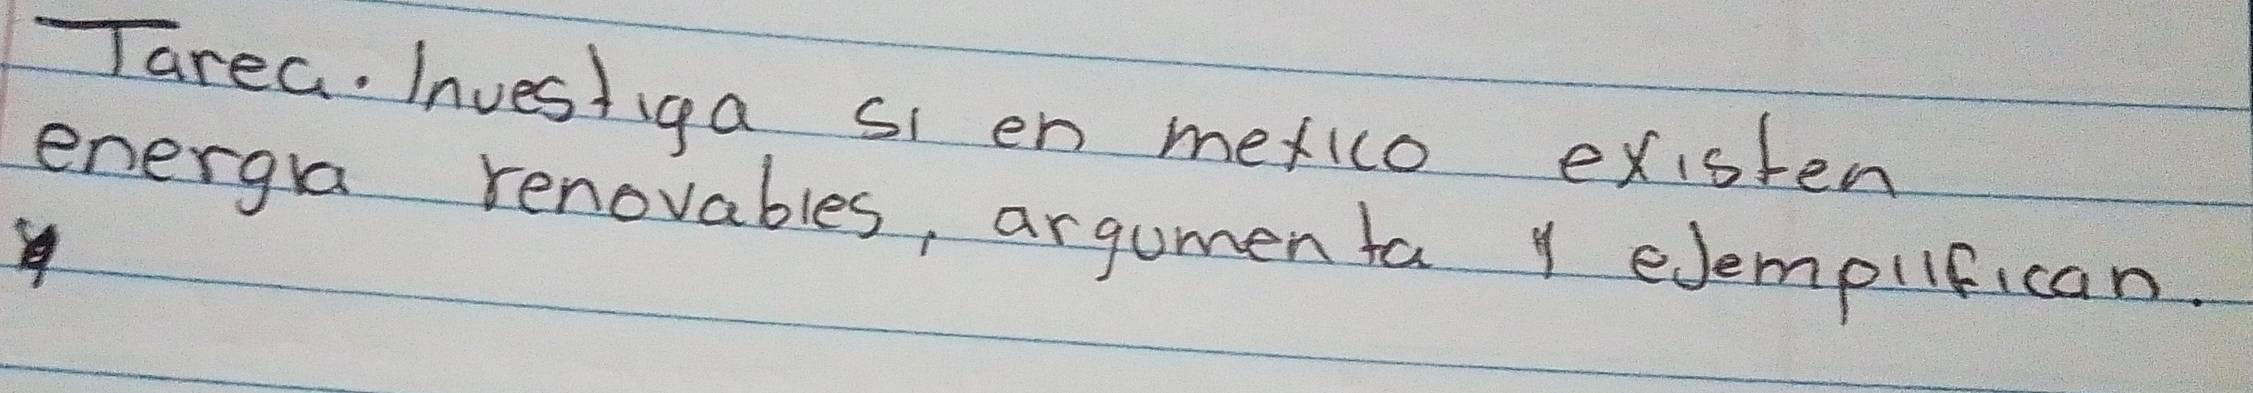 Tarea. Investiga si en mexico existen
energia renovables, argumenta y ejemplifican.